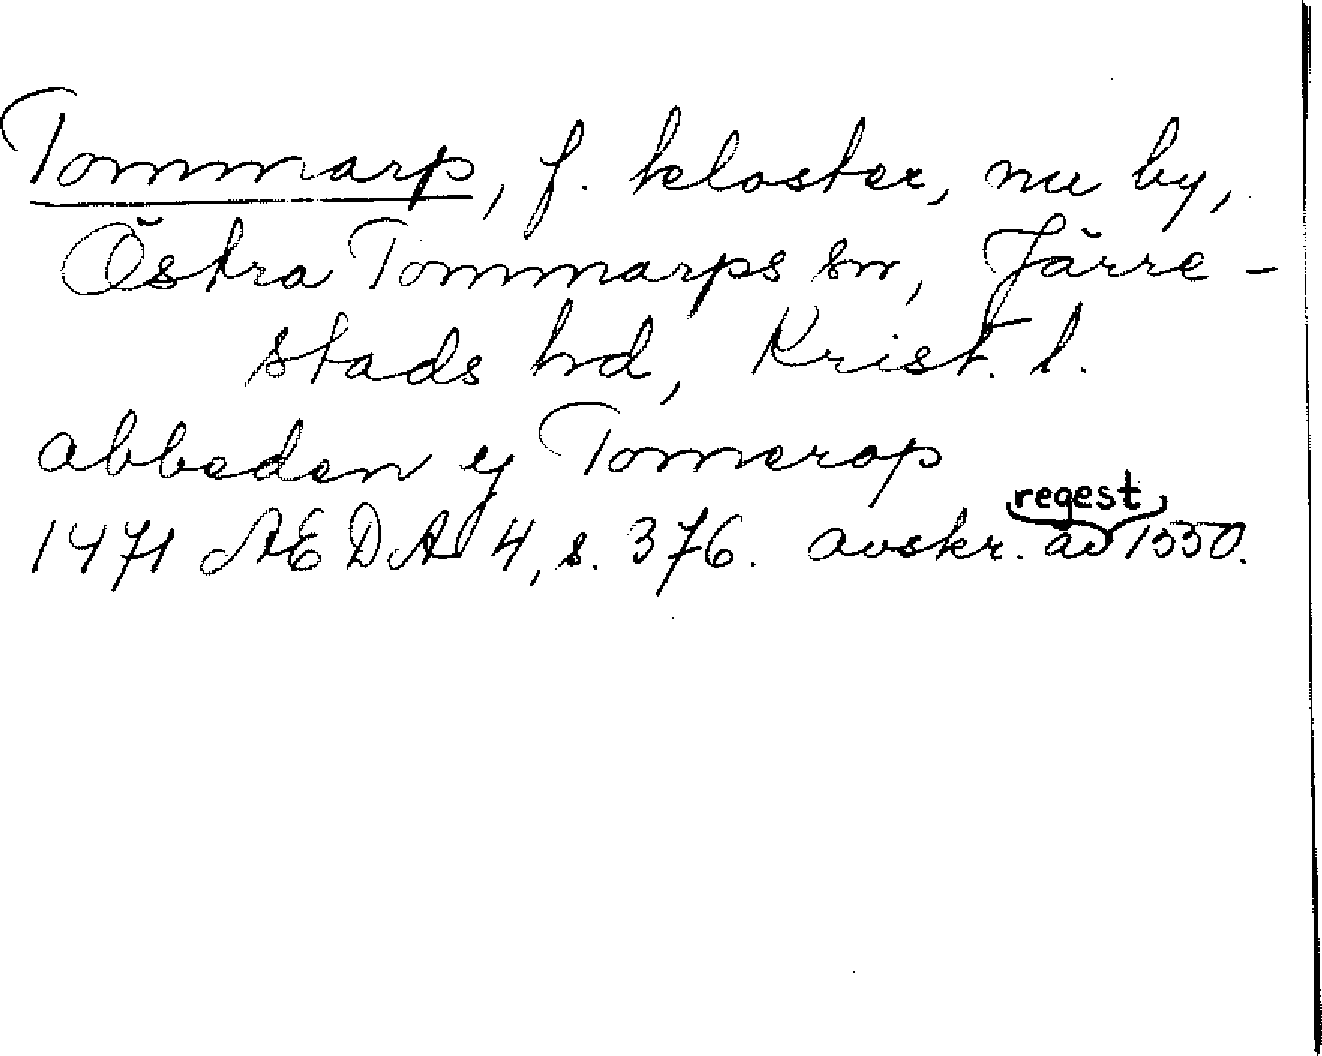 Tommarp, f. kloster, nu by,
Östra Tommarps sn, Järre-
stads hd, Krist. l.
abbeden y Tomerop
1471 AEDA 4, s. 376. avskr. av regest 1550.